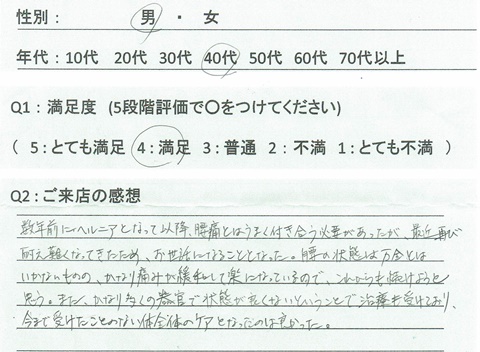 性別： 男 ・ 女
年代：10代 20代 30代 40代 50代 60代 70代以上
Q1：満足度 (5段階評価で〇をつけてください)
( 5：とても満足 4：満足 3：普通 2：不満 1：とても不満 )
Q2：ご来店の感想
数年前にヘルニアとなって以降、腰痛とはうまく付き合う必要があったが、最近再び
耐え難くなってきたため、お世話になることとなった。腰の状態は万全とは
いかないものの、かなり痛みが緩和して楽になっているので、これからも続けようと
思う。また、かなり多くの器官で状態が良くないということで治療も受けており、
今まで受けたことのない体全体のケアとなったのは良かった。